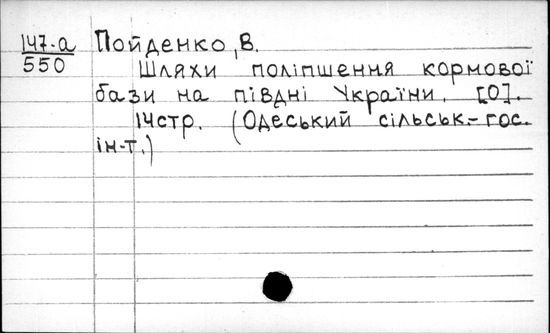 147-а Пойденко, В.
550
Шляхи поліпшення кормової
бази на півдні України. [О].
14стр. (Одеський сільськ.-гос.
ін-т.)